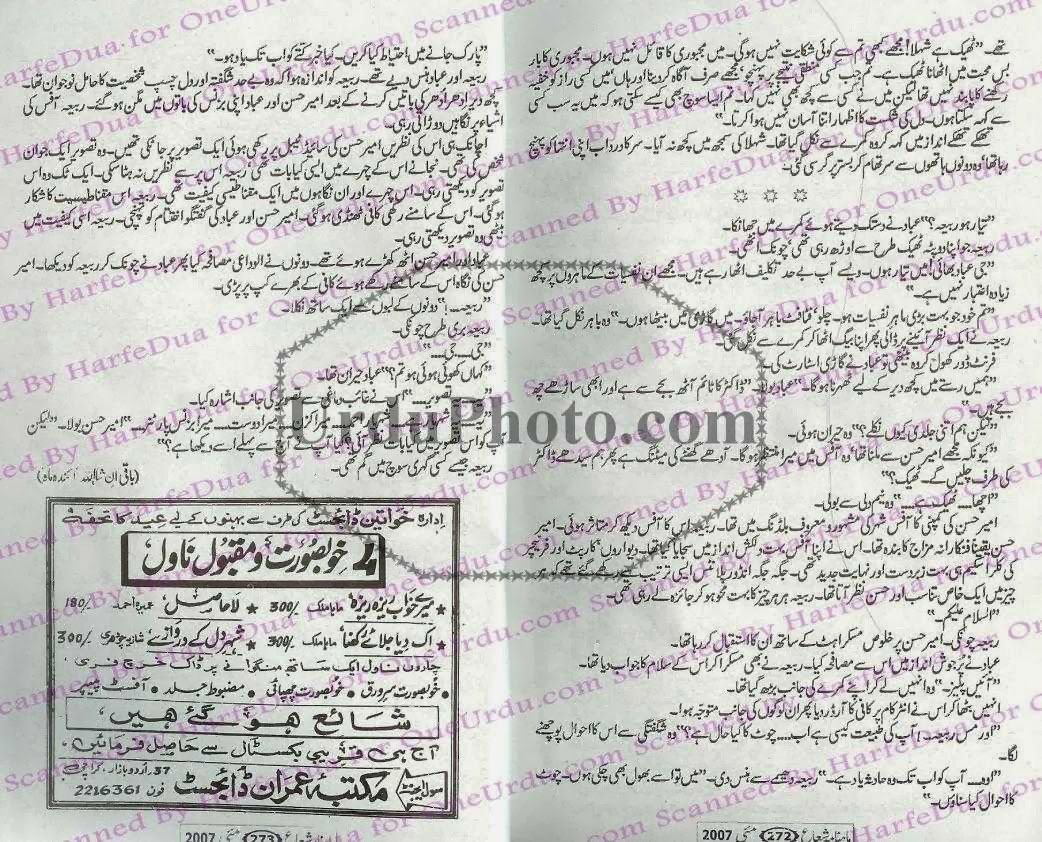 تھے۔ "ٹھیک ہے شہلا! مجھے کبھی تم سے کوئی شکایت نہیں ہوگی۔ میں مجبوری کا قائل نہیں ہوں۔ مجبوری کا بار
بس محبت میں اٹھانا ٹھیک ہے۔ تم جب کسی منطقی نتیجے پر پہنچو، مجھے صرف آگاہ کر دینا اور ہاں میں کسی راز کو خفیہ
رکھنے کا پابند نہیں تھا لیکن میں نے کسی سے کچھ بھی نہیں کہا۔ تم ایسا سوچ بھی کیسے سکتی ہو کہ میں یہ سب کسی
سے کہہ سکتا ہوں۔ دل کی شکست کا اظہار اتنا آسان نہیں ہوا کرتا۔"
تھکے تھکے انداز میں کہہ کر وہ کمرے سے نکل گیا تھا۔ شہلا کی سمجھ میں کچھ نہ آیا۔ سرکا درد اب اپنی انتہا کو پہنچ
رہا تھا، وہ دونوں ہاتھوں سے سر تھام کر بستر پر گر سی گئی۔
"تیار ہو ربیعہ؟" عباد نے دستک دیتے ہوئے کمرے میں جھانکا۔
ربیعہ جو اپنا دوپٹہ ٹھیک طرح سے اوڑھ رہی تھی، چونک اٹھی۔
"جی عباد بھائی! میں تیار ہوں۔ ویسے آپ بے حد تکلیف اٹھا رہے ہیں۔ مجھے ان نفسیات کے ماہروں پر کچھ
زیادہ اعتبار نہیں ہے۔"
"تم خود جو بہت بڑی ماہر نفسیات ہو۔ چلو، فٹافٹ باہر آ جاؤ۔ میں گاڑی میں بیٹھا ہوں۔" وہ باہر نکل گیا تھا۔
ربیعہ نے ایک نظر آئینے پر ڈالی پھر اپنا بیگ اٹھا کر کمرے سے نکل گئی۔
فرنٹ ڈور کھول کر وہ بیٹھی تو عباد نے گاڑی اسٹارٹ کی۔
"ہمیں رستے میں کچھ دیر کے لیے ٹھہرنا ہوگا۔" عباد بولا۔ "ڈاکٹر کا ٹائم آٹھ بجے سے ہے اور ابھی ساڑھے چھ
بجے ہیں۔"
"لیکن ہم اتنی جلدی کیوں نکلے؟" وہ حیران ہوئی۔
"کیونکہ مجھے امیر حسن سے ملنا تھا، وہ آفس میں میرا منتظر ہوگا۔ آدھے گھنٹے کی میٹنگ ہے پھر ہم سیدھے ڈاکٹر
کی طرف چلیں گے۔ ٹھیک؟"
"اچھا... ٹھیک ہے..." وہ نیم دلی سے بولی۔
امیر حسن کی کمپنی کا آفس شہر کی مشہور و معروف بلڈنگ میں تھا۔ ربیعہ اس کا آفس دیکھ کر متاثر ہوئی۔ امیر
حسن یقیناً فنکارانہ مزاج کا بندہ تھا۔ اس نے اپنا آفس بہت دلکش انداز میں سجایا تھا۔ دیواروں، کارپٹ اور فرنیچر
کی کلر اسکیم ہی بہت زبردست اور نہایت جدید تھی۔ جگہ جگہ انڈور پلانٹس ایسی ترتیب سے رکھے گئے تھے کہ ہر
چیز میں ایک خاص تناسب اور حسن نظر آتا تھا۔ ربیعہ ہر ہر چیز کا بہت محو ہو کر جائزہ لے رہی تھی۔
"السلام علیکم۔"
ربیعہ چونکی۔ امیر حسن پرخلوص مسکراہٹ کے ساتھ ان کا استقبال کر رہا تھا۔
عباد نے پرجوش انداز میں اس سے مصافحہ کیا۔ ربیعہ نے بھی مسکرا کر اس کے سلام کا جواب دیا تھا۔
"آئیں پلیز۔" وہ انہیں لے کر اپنے کمرے کی جانب بڑھ گیا تھا۔
انہیں بٹھا کر اس نے انٹرکام پر کافی کا آرڈر دیا پھر ان لوگوں کی جانب متوجہ ہوا۔
"اور مس ربیعہ۔! آپ کی طبیعت کیسی ہے اب... چوٹ کا کیا حال ہے؟" وہ شگفتگی سے اس کا احوال پوچھنے
لگا۔
"اوہ۔ آپ کو اب تک وہ حادثہ یاد ہے۔" ربیعہ دھیمے سے ہنس دی۔ "میں تو اسے بھول بھی چکی ہوں۔ چوٹ
کا احوال کیا سناؤں۔"
ماہنامہ شعاع 272 مئی 2007
"پارک جانے میں احتیاط کیا کریں۔ کیا خبر کتے کو اب تک یاد ہو۔"
ربیعہ اور عباد ہنس دیے تھے۔ ربیعہ کو اندازہ ہوا کہ وہ بے حد شگفتہ اور دل چسپ شخصیت کا حامل نوجوان تھا۔
کچھ دیر ادھر ادھر کی باتیں کرنے کے بعد امیر حسن اور عباد اپنی بزنس کی باتوں میں مگن ہو گئے۔ ربیعہ آفس کی
اشیاء پر نگاہیں دوڑاتی رہی۔
اچانک ہی اس کی نظریں امیر حسن کی سائیڈ ٹیبل پر رکھی ہوئی ایک تصویر پر جا ٹکی تھیں۔ وہ تصویر ایک جوان
شخص کی تھی۔ نجانے اس کے چہرے میں ایسی کیا بات تھی، ربیعہ اس پر سے نظریں نہ ہٹا سکی۔ ایک ٹک وہ اس
تصویر کو دیکھتی رہی۔ اس چہرے اور ان نگاہوں میں ایک مقناطیسی کیفیت تھی۔ ربیعہ اس مقناطیسیت کا شکار
ہو گئی۔ اس کے سامنے رکھی کافی ٹھنڈی ہو گئی۔ امیر حسن اور عباد کی گفتگو اختتام کو پہنچی۔ ربیعہ اسی کیفیت میں
بیٹھی وہ تصویر دیکھتی رہی۔
عباد اور امیر حسن اٹھ کھڑے ہوئے تھے۔ دونوں نے الوداعی مصافحہ کیا پھر عباد نے چونک کر ربیعہ کو دیکھا۔ امیر
حسن کی نگاہ اس کے سامنے رکھے ہوئے کافی کے بھرے کپ پر پڑی۔
"ربیعہ...!" دونوں کے لبوں سے ایک ساتھ نکلا۔
ربیعہ بری طرح چونکی۔
"جی... جی..."
"کہاں کھوئی ہوئی ہو تم؟" عباد حیران تھا۔
تصویر..." اس نے غائب دماغی سے تصویر کی جانب اشارہ کیا۔
میرا کزن۔ میرا دوست... میرا بزنس پارٹنر..." امیر حسن بولا۔ "لیکن آپ
کو اس تصویر میں کیا بات نظر آئی؟ کیا آپ نے اس سے پہلے اسے دیکھا ہے؟"
ربیعہ جیسے کسی گہری سوچ میں گم تھی۔
(باقی ان شاء اللہ آئندہ ماہ)
ادارہ خواتین ڈائجسٹ کی طرف سے بہنوں کے لیے عید کا تحفہ
4 خوبصورت و مقبول ناول
★ میرے خواب ریزہ ریزہ، ماہا ملک 300/- ★ لاحاصل، عمیرہ احمد 180/-
★ اک دیا جلائے رکھنا، ماہا ملک 300/- ★ شہر دل کے دروازے، شازیہ چوہدری 300/-
چاروں ناول ایک ساتھ منگوانے پر ڈاک خرچ فری
• خوبصورت سرورق • خوبصورت چھپائی • مضبوط جلد • آفسٹ پیپر
شائع ہو گئے ہیں،
آج ہی قریبی بکسٹال سے حاصل فرمائیں،
سول ایجنٹ مکتبہ عمران ڈائجسٹ 37، اردو بازار، کراچی فون 2216361
ماہنامہ شعاع 273 مئی 2007
UrduPhoto.com
Scanned By HarfeDua for OneUrdu.com